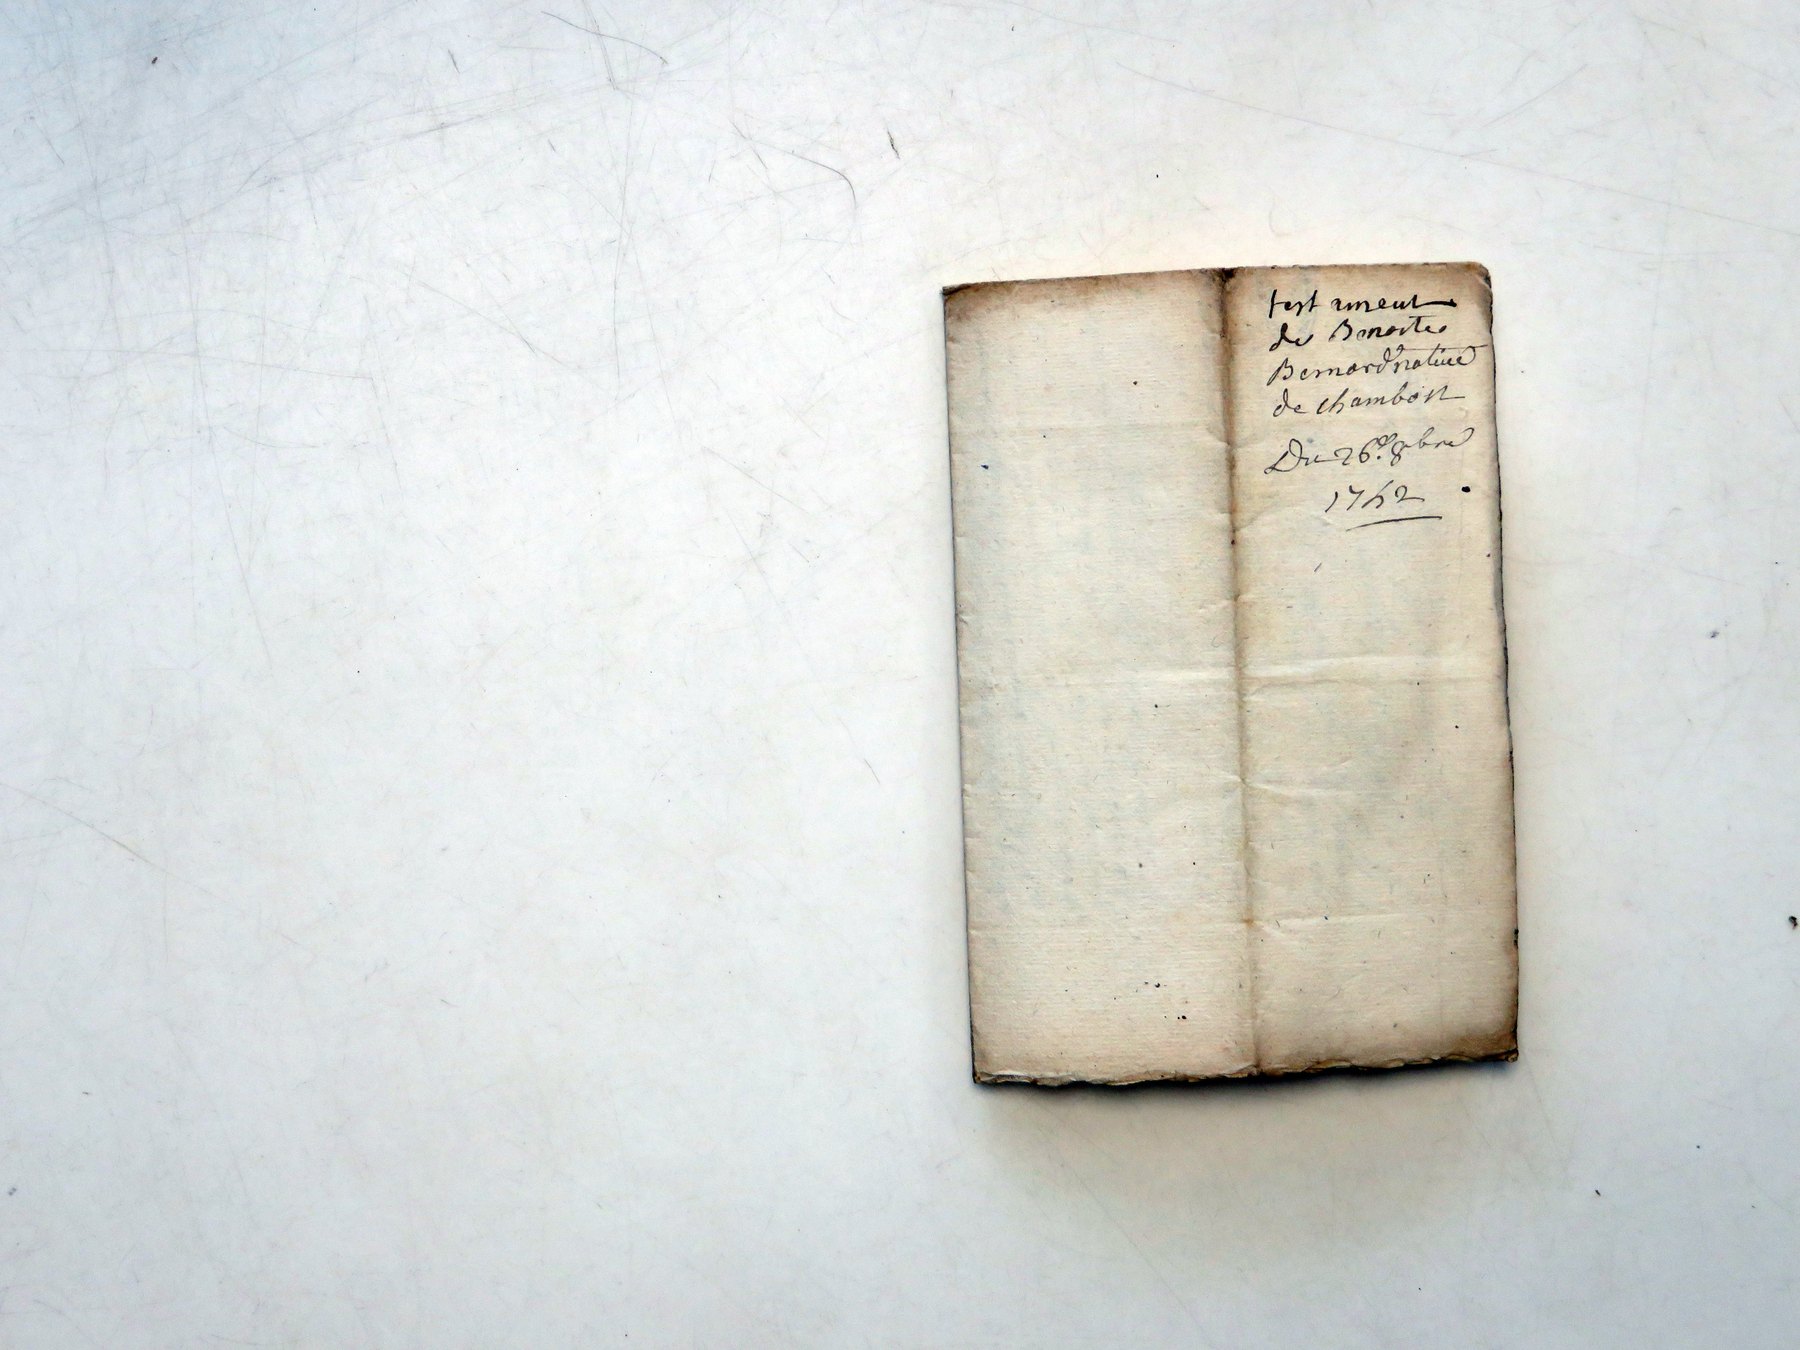 testament
de Benoite
Bernard native
de chambost
Du 26.e 8bre
1742